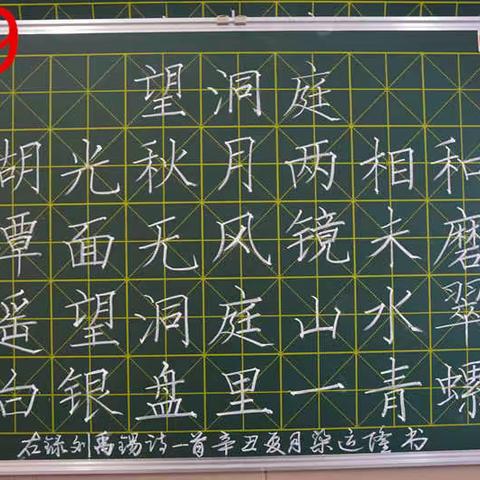 9
望洞庭
湖光秋月两相和
潭面无风镜未磨
遥望洞庭山水翠
白银盘里一青螺
右録刘禹锡诗一首辛丑夏月梁运隆书